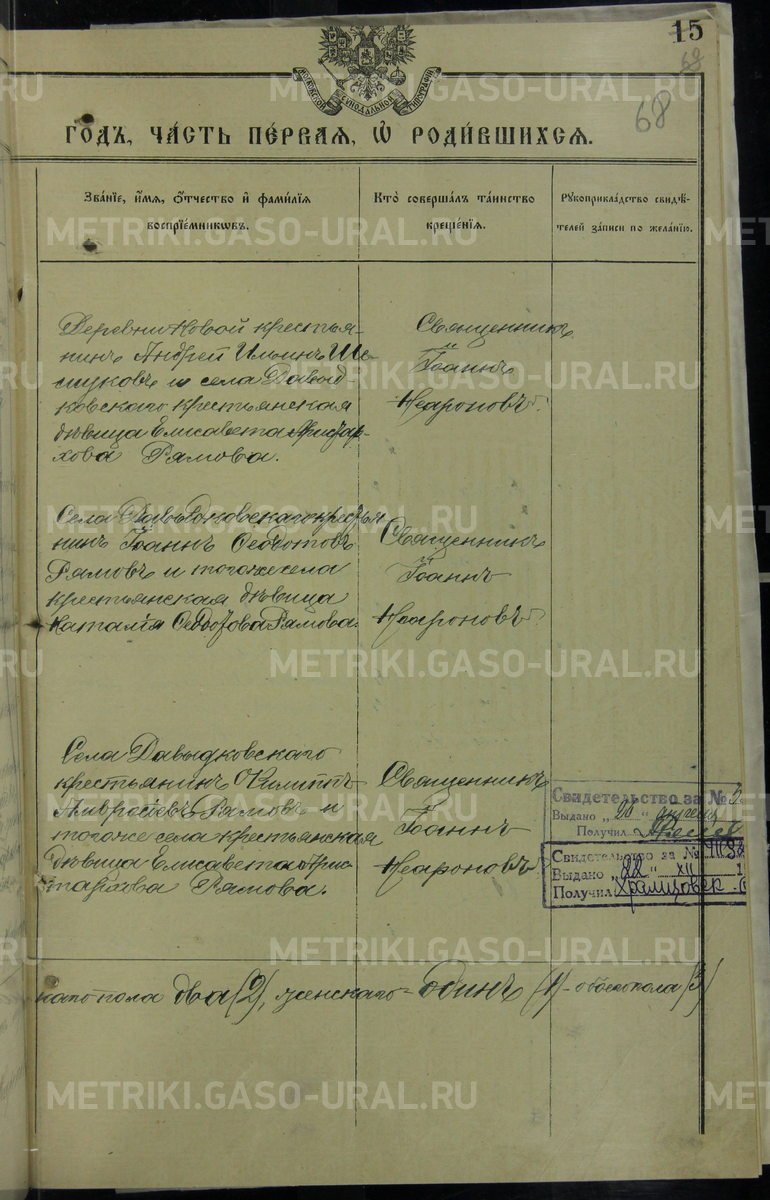 15
68
68
МОСКОВСКОЙ СѴНОДАЛЬНОЙ ТИПОГРАФІИ
ГОДЪ, ЧАСТЬ ПЕРВАЯ, Ѡ РОДИВШИХСЯ.
Званіе, имя, отчество и фамилія воспріемниковъ.
Кто совершалъ таинство крещенія.
Рукоприкладство свидѣтелей записи по желанію.
Деревни Новой крестья-
нинъ Андрей Ильинъ Ше-
шуковъ и села Давыд-
ковскаго крестьянская
дѣвица Елисавета Аристар-
хова Рямова.
Священникъ
Іоаннъ
Неароновъ.
Села Давыдковскаго кресть
нинъ Іоаннъ Ѳедотовъ
Рямовъ и тогоже села
крестьянская дѣвица
Наталія Ѳеодорова Рямова.
Священникъ
Іоаннъ
Неароновъ.
Села Давыдковскаго
крестьянинъ Филиппъ
Амвросіевъ Рямовъ и
тогоже села крестьянская
дѣвица Елисавета Арис-
тархова Рямова.
Священникъ
Іоаннъ
Неароновъ.
Свидетельство за №
Выдано „20“ апреля
Получил
Свидетельство за №
Выдано „22“ XII
Получил
каго пола два (2), женскаго - одинъ (1) - обоего пола (3)
METRIKI.GASO-URAL.RU